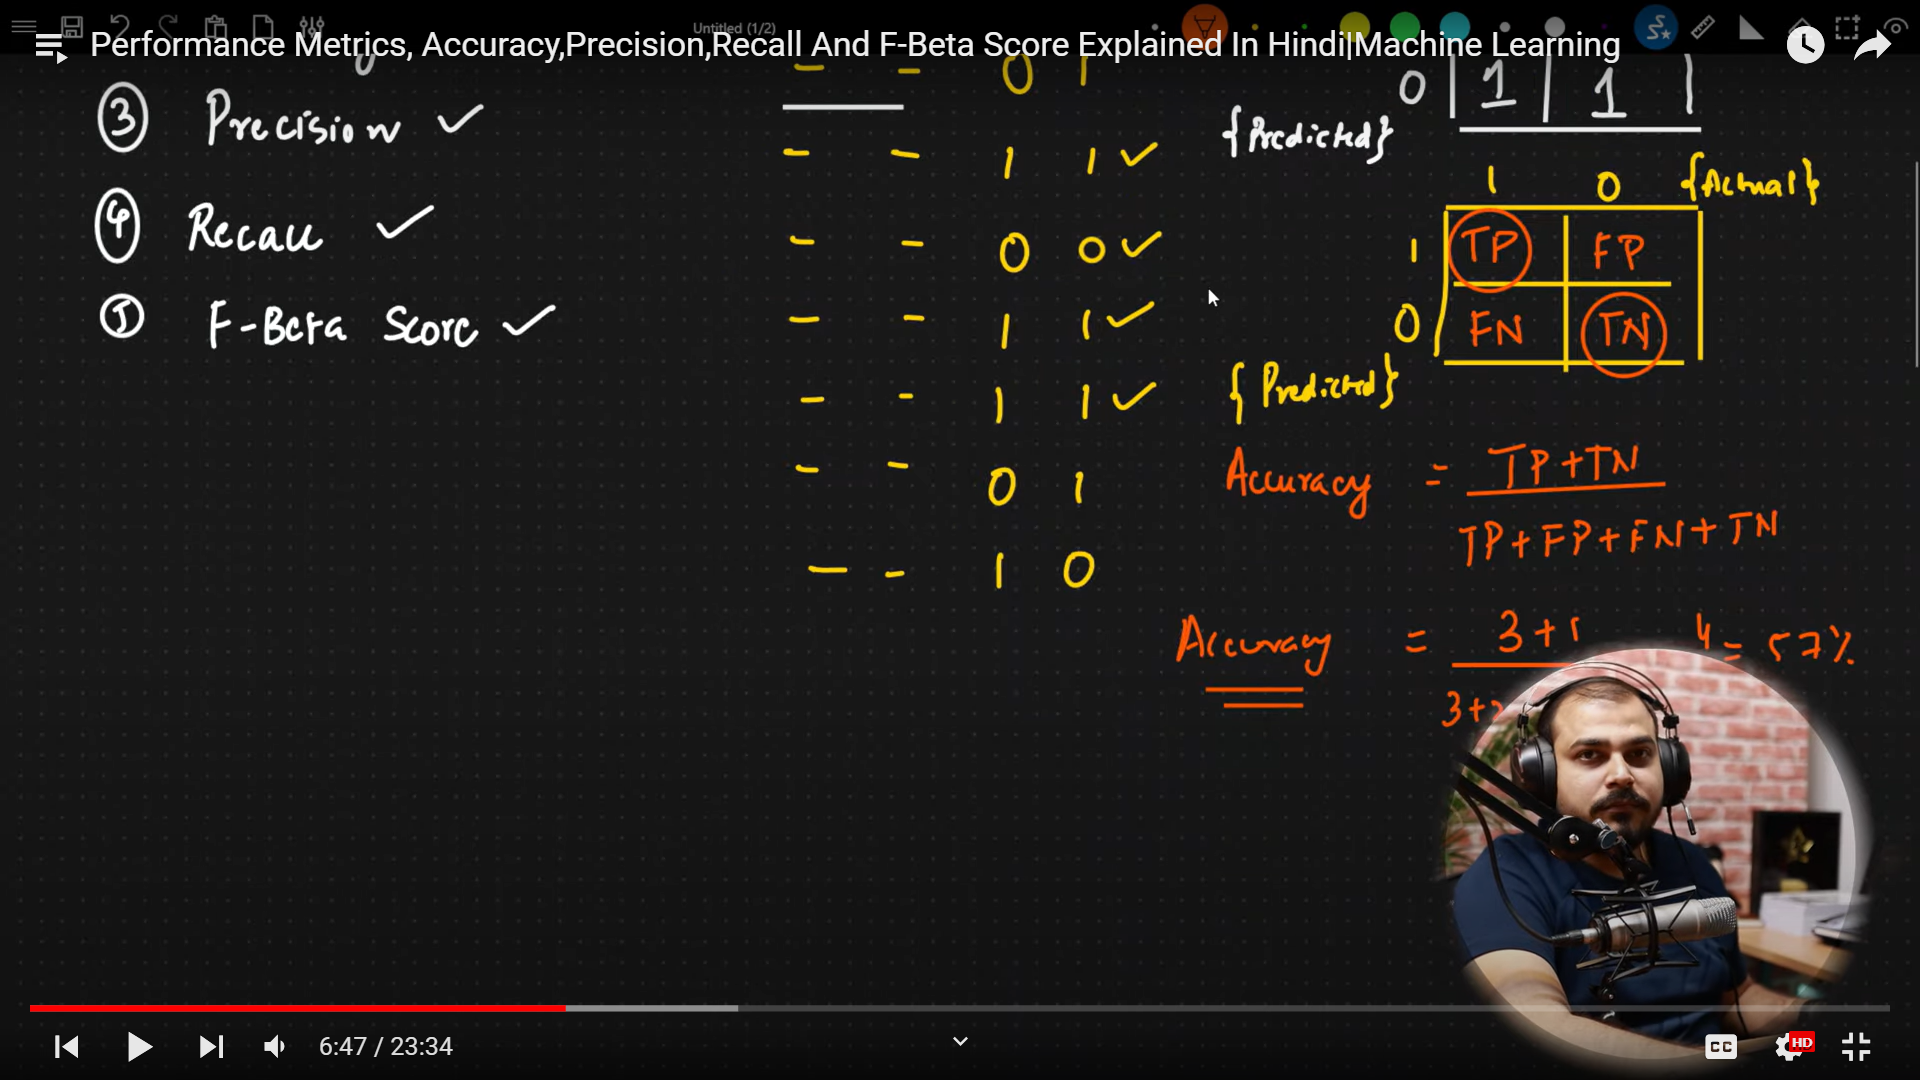 Untitled (1/2)
Performance Metrics, Accuracy,Precision,Recall And F-Beta Score Explained In Hindi|Machine Learning
3 Precision ✓
4 Recall ✓
5 F-Beta Score ✓
- - 0 1
- - 1 1 ✓
- - 0 0 ✓
- - 1 1 ✓
- - 1 1 ✓
- - 0 1
- - 1 0
0 1 1
{Predicted}
1 0 {Actual}
1 TP FP
0 FN TN
{Predicted}
Accuracy = TP+TN
TP+FP+FN+TN
Accuracy = 3+1 4 = 57%
3+2
6:47 / 23:34
CC
HD